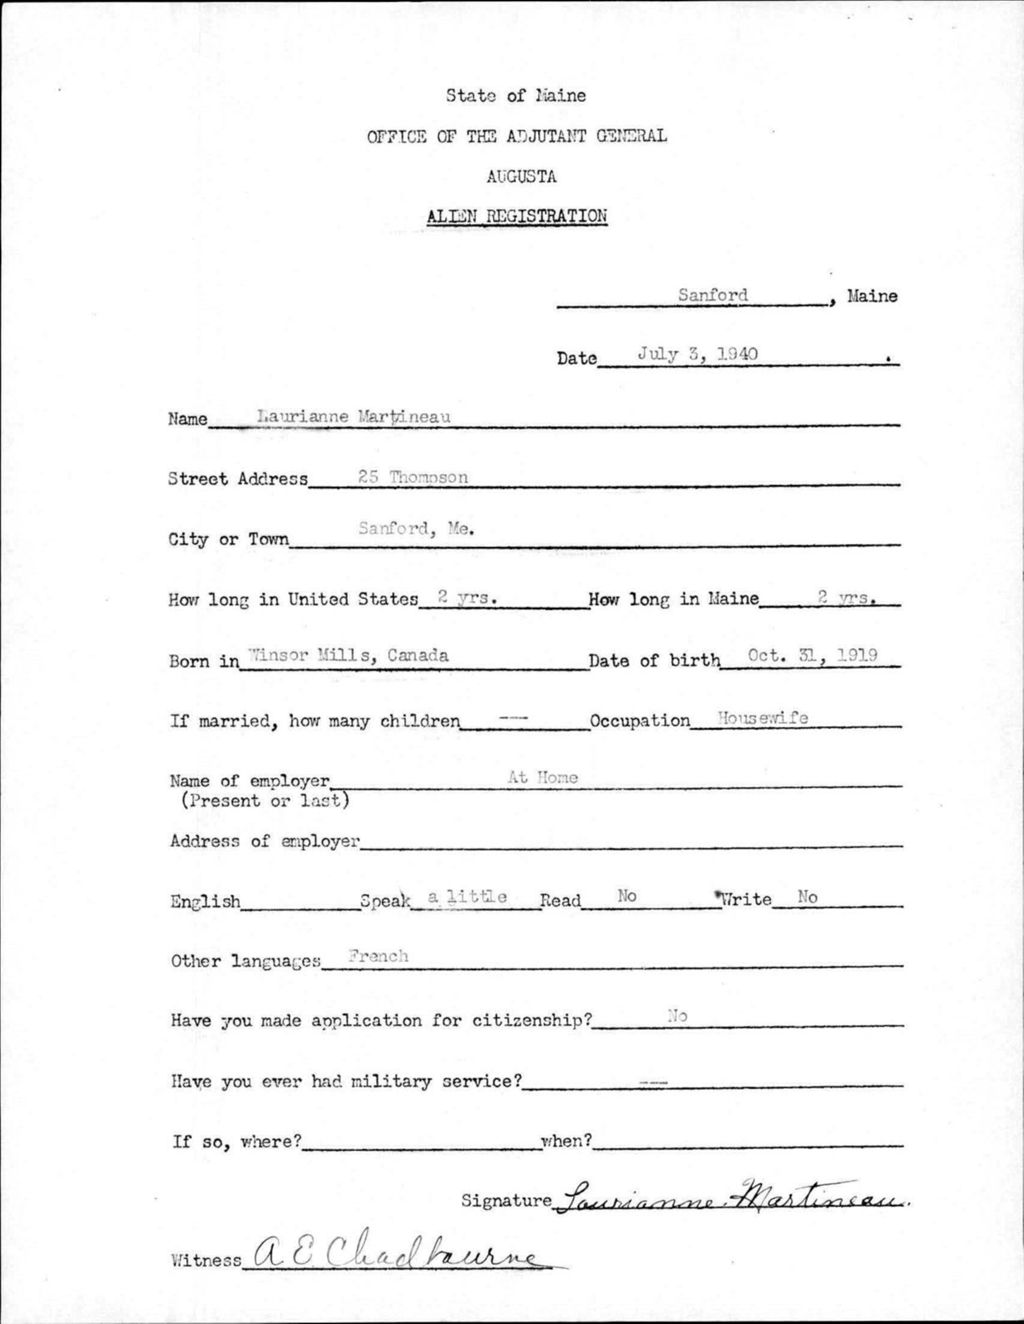 State of Maine
OFFICE OF THE ADJUTANT GENERAL
AUGUSTA
ALIEN REGISTRATION
Sanford, Maine
Date July 3, 1940.
Name Laurianne Martineau
Street Address 25 Thompson
City or Town Sanford, Me.
How long in United States 2 yrs. How long in Maine 2 yrs.
Born in Winsor Mills, Canada Date of birth Oct. 31, 1919
If married, how many children --- Occupation Housewife
Name of employer At Home
(Present or last)
Address of employer
English Speak a little Read No Write No
Other languages French
Have you made application for citizenship? No
Have you ever had military service? ---
If so, where? when?
Signature Laurianne Martineau.
Witness A E Chadbourne